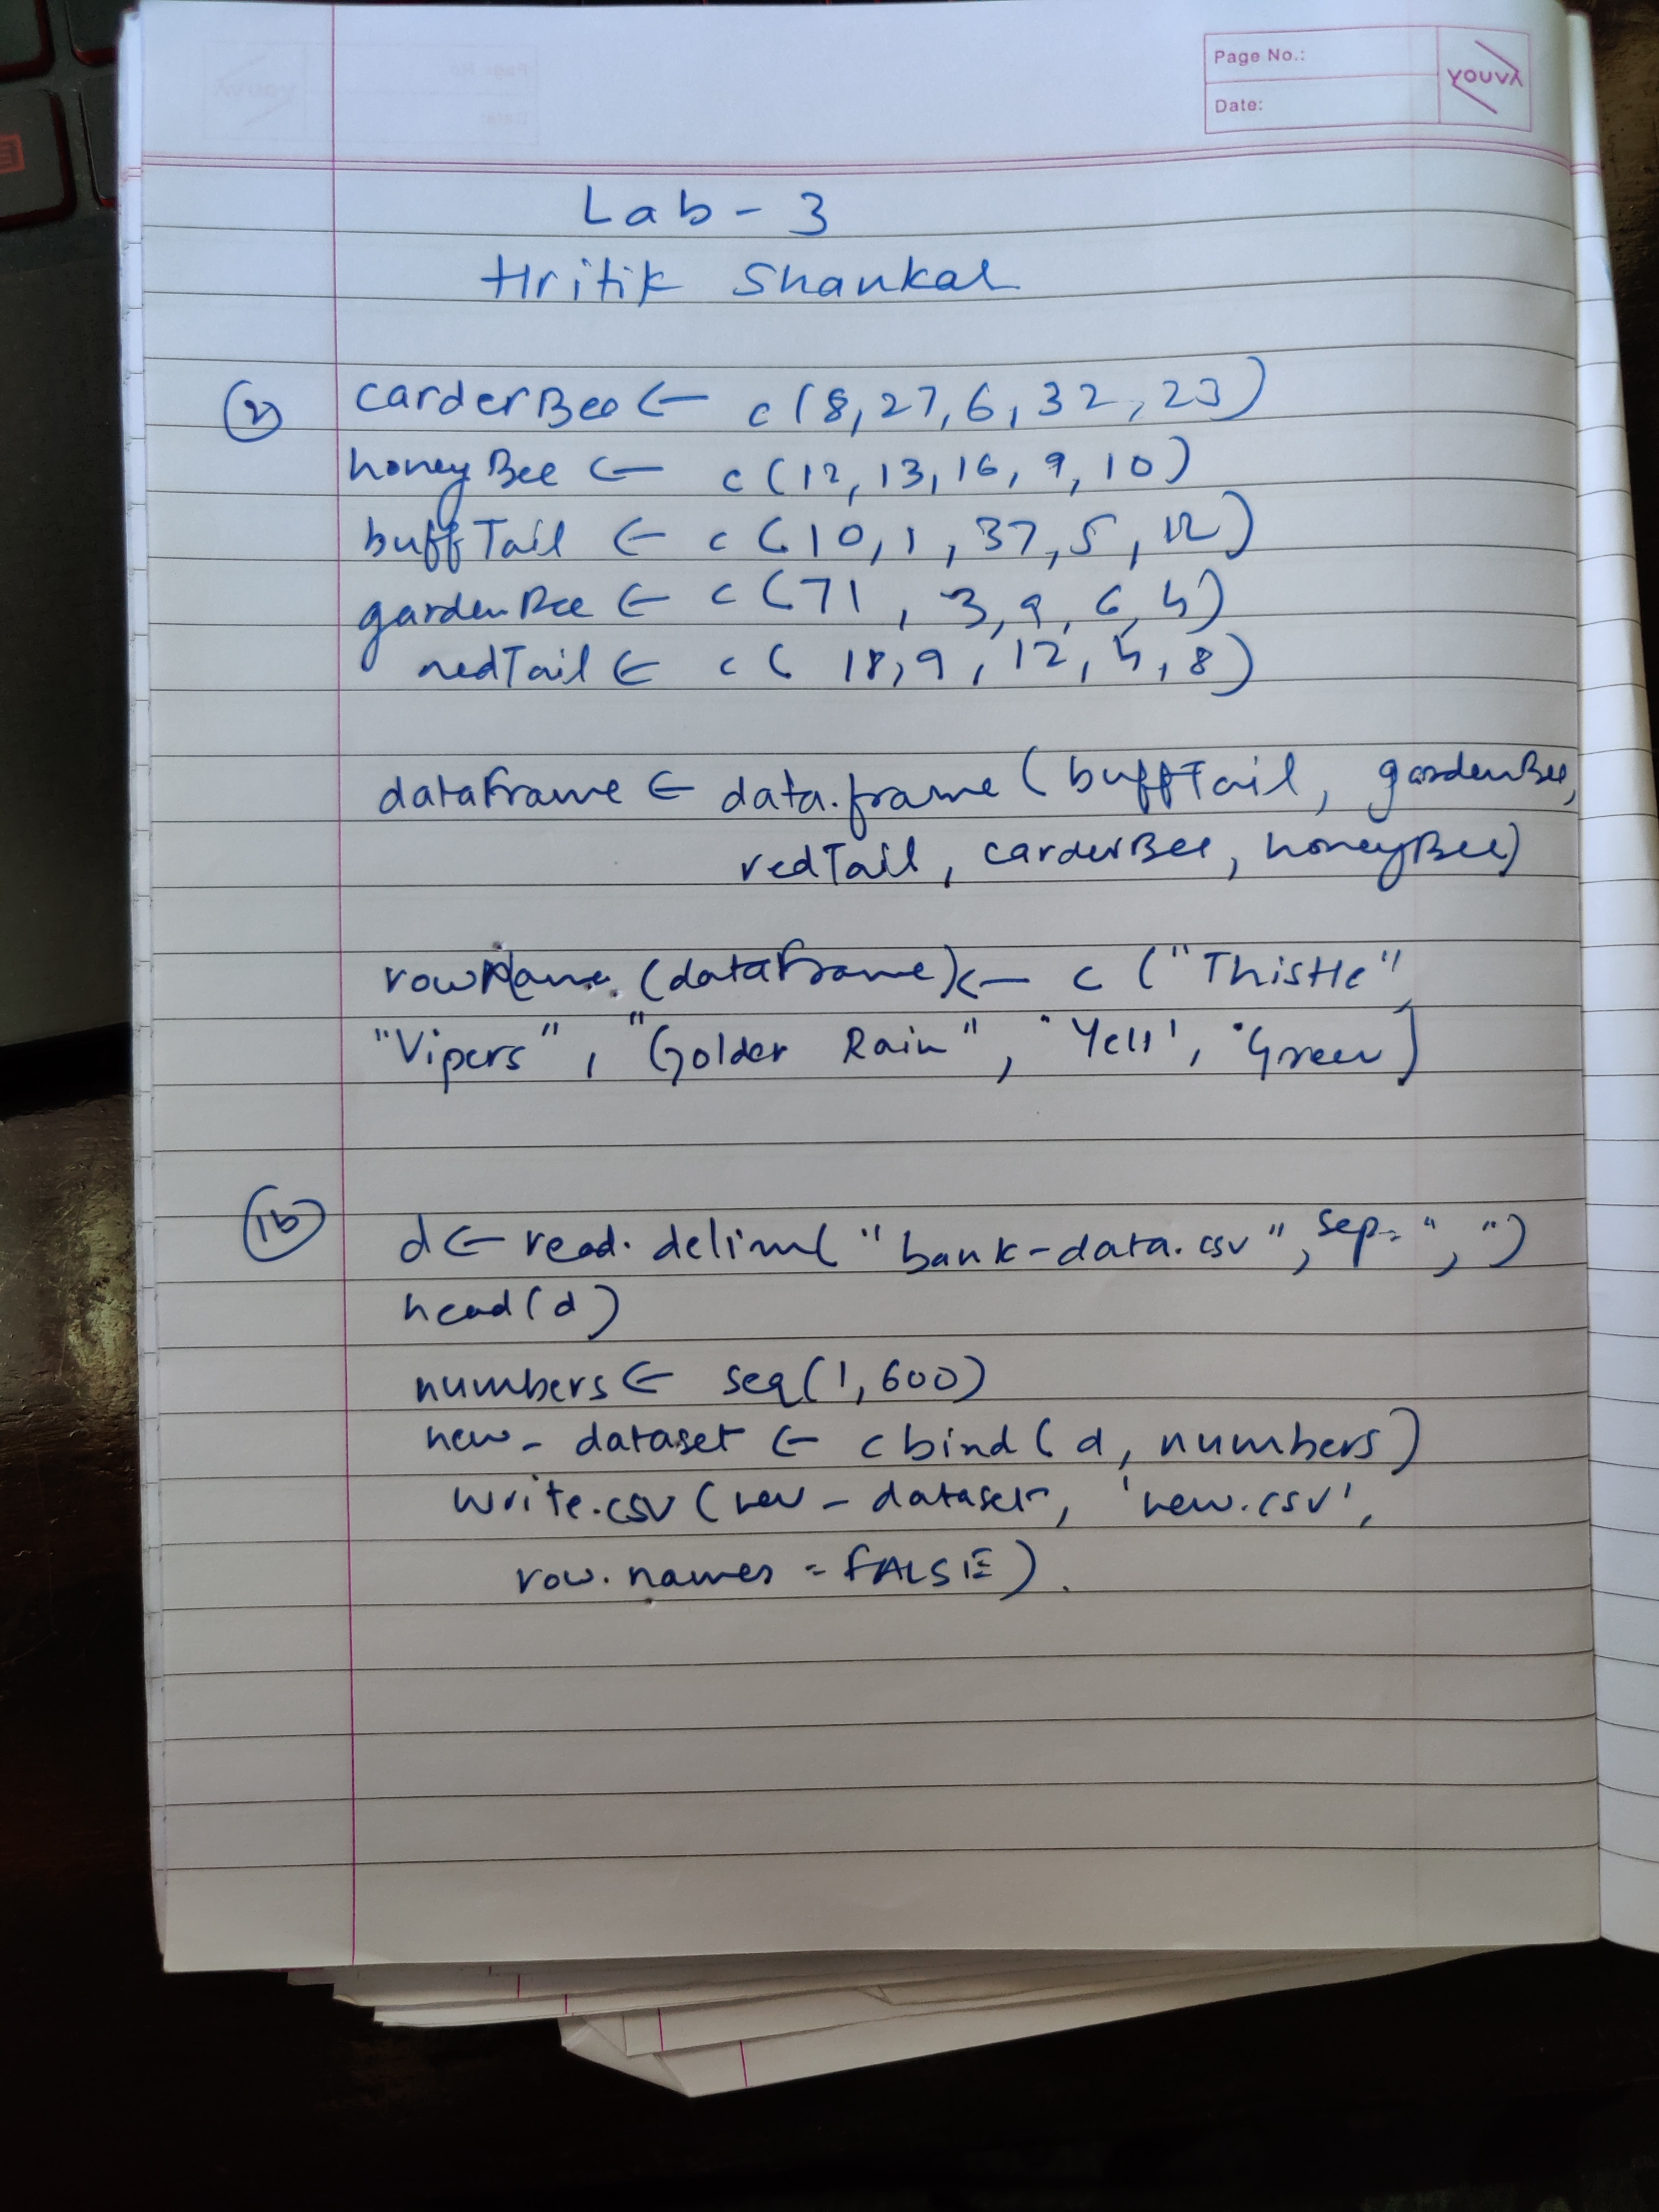 Page No.:
Date:
youva
Lab - 3
Hritik Shankar
2) carderBee <- c(8,27,6,32,23)
honeyBee <- c(12,13,16,9,10)
buffTail <- c(10,1,37,5,12)
gardenBee <- c(71,3,9,6,4)
redTail <- c(18,9,12,4,8)
dataFrame <- data.frame(buffTail, gardenBee,
redTail, carderBee, honeyBee)
(dataFrame) <- c ("Thistle",
"Vipers", "Golder Rain", 'Yell', 'Green)
1b) d <- read.delim("bank-data.csv", sep=",")
head(d)
numbers <- seq(1,600)
new_dataset <- cbind(d, numbers)
write.csv(new_dataset, 'new.csv',
row.names = FALSE).